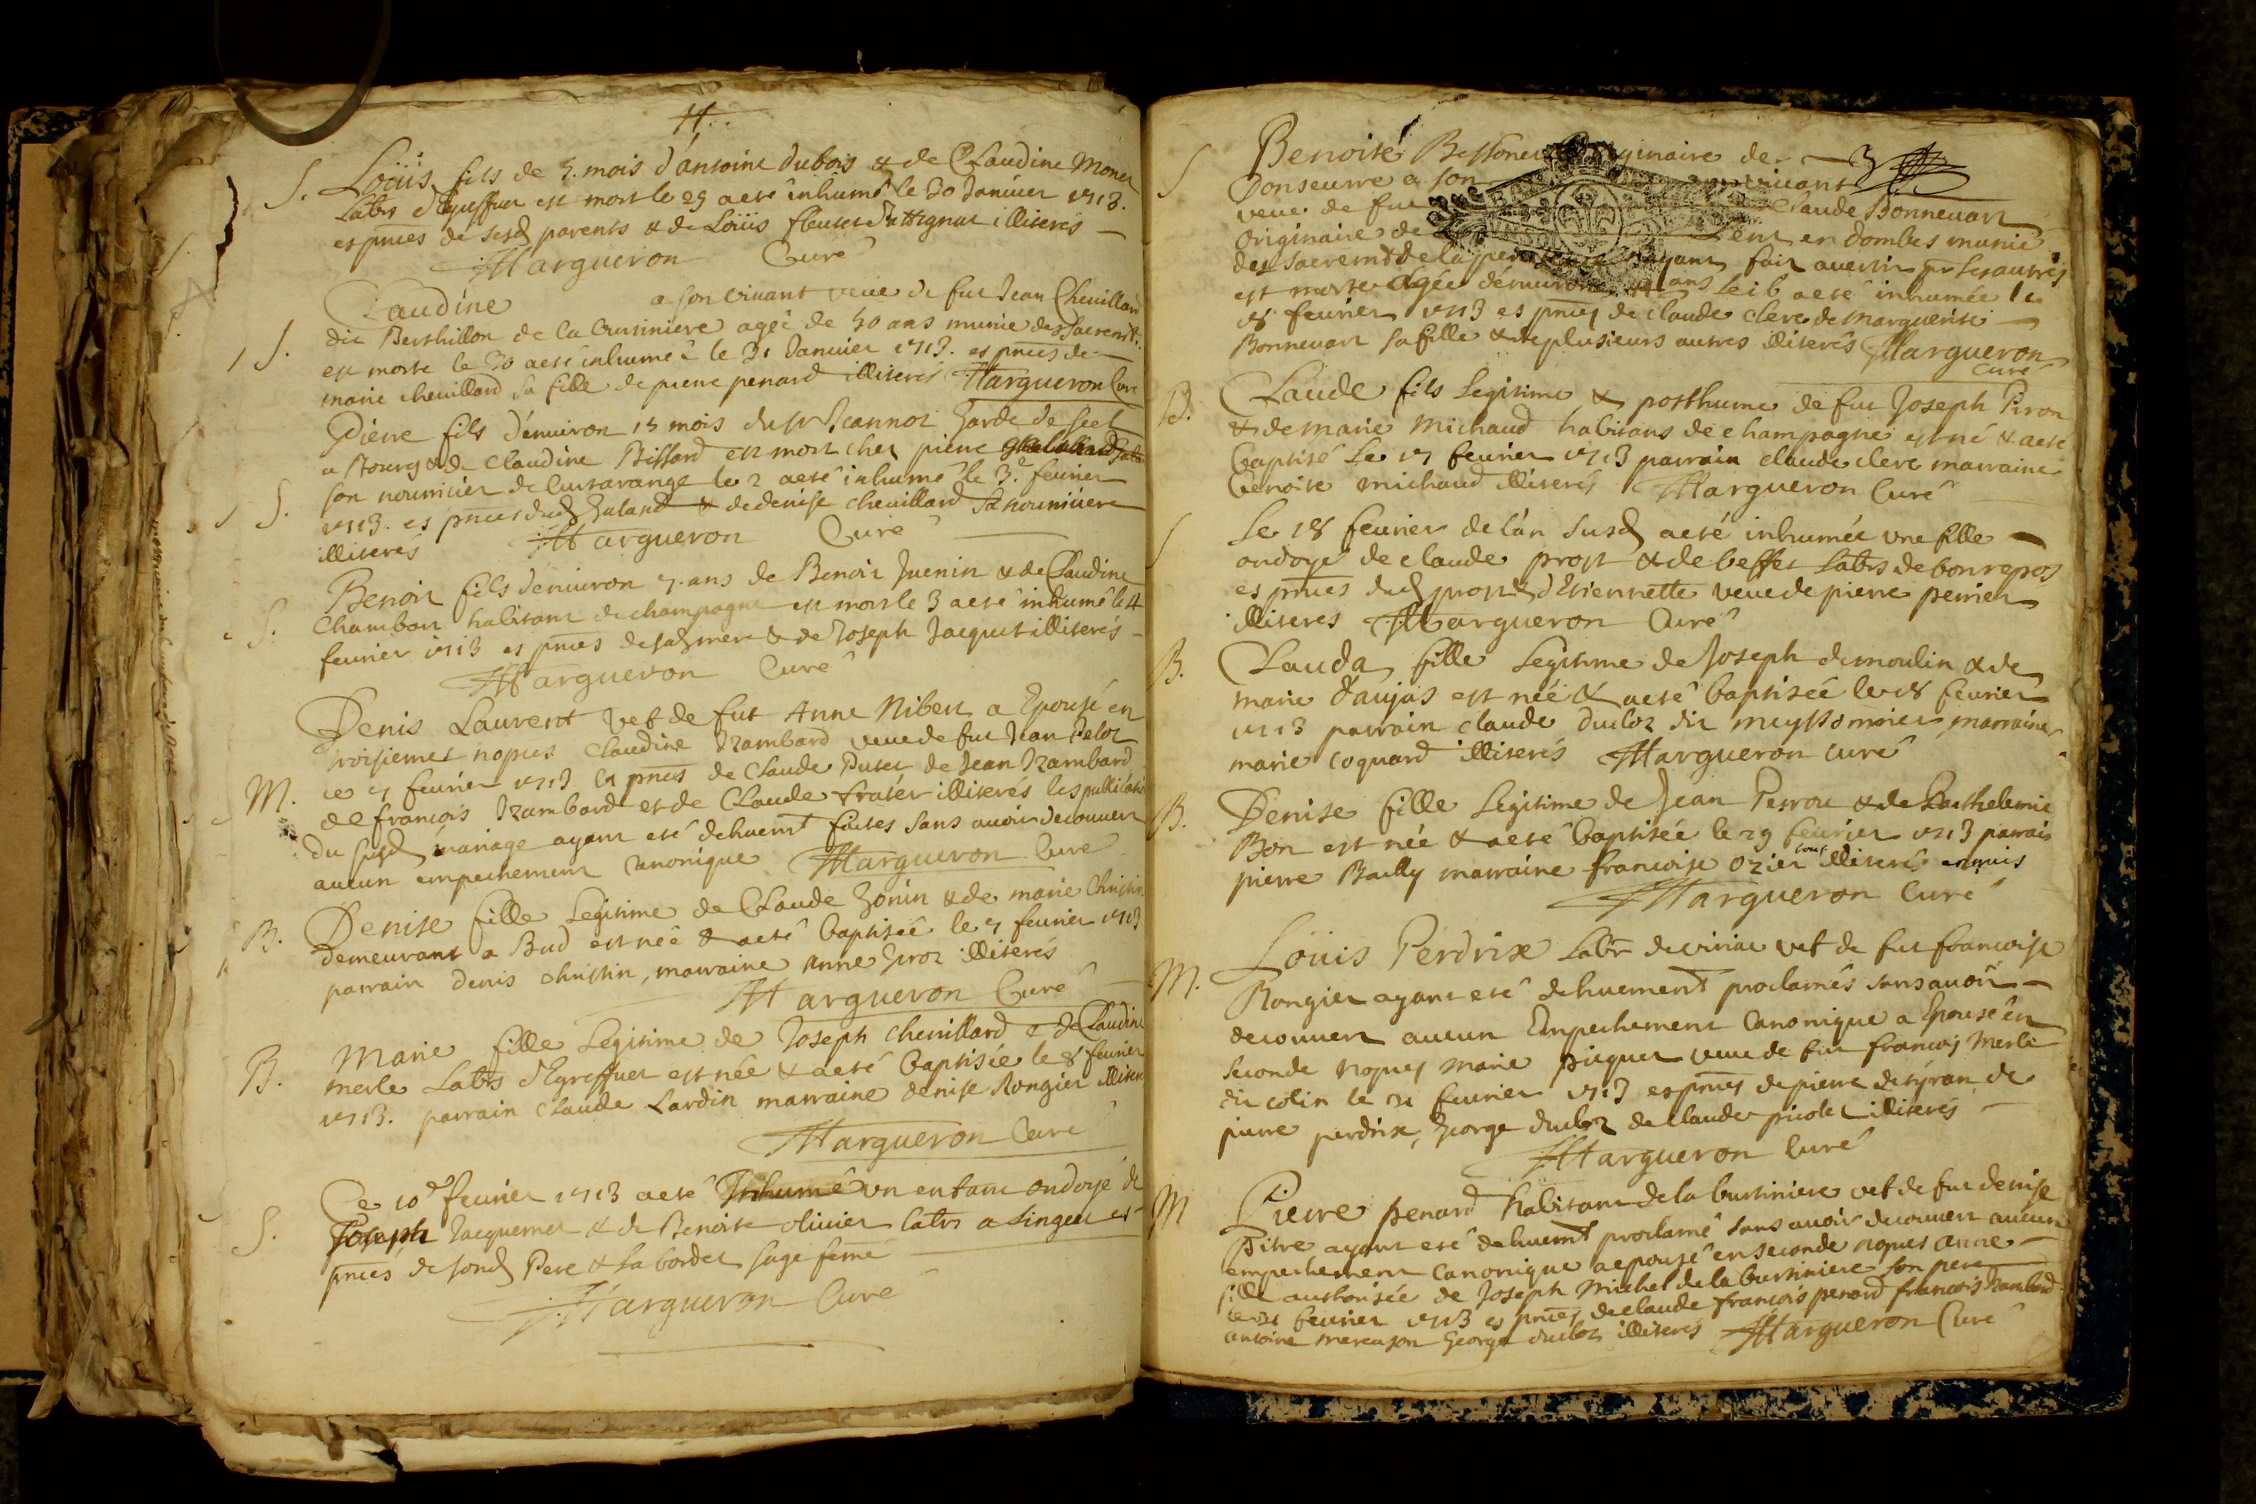 S. Loüis fils de 3. mois d'antoine dubois & de Claudine Monet
Labrs d'Egreffuet est mort le 29 a eté inhumé le 30 Januier 1713.
es pnces de sesd parents & de Loüis illiterés
Margueron Curé
S. Claudine a son viuant veue de fut Jean Cheuillard
dit Berthillon de la agée de 50 ans munie des sacremts.
est morte le 30 a eté inhumée le 31 Januier 1713. es pnces de
marie cheuillard sa fille de pierre penard illiterés Margueron Curé
Pierre fils d'enuiron 15 mois du Sr Jeannot garde de
a Bourg & de Claudine Bissard est mort chez pierre
S. son nourricier de le 2 a eté inhumé le 3e. feurier
1713. es pnces dud Galand & de denise cheuillard sa nourriciere
illiterés Margueron Curé
Benoit fils d'enuiron 7. ans de Benoit Juenin & de Claudine
S. Chambart habitant de champagne est mort le 3 a eté inhumé le 4
feurier 1713 es pnces de sad mere & de Joseph Jacquet illiterés
Margueron Curé
Denis Laurent vef de fut Anne Nibert a Epousé en
troisiemes nopces Claudine Izambard veue de fut Jean Pelot
M. le 7 feurier 1713 es pnces de Claude Putet de Jean Izambard
de françois Izambard et de Claude frater illiterés les publicatio
du susd mariage ayant eté dehuemt faites sans auoir decouuert
aucun empechement Canonique Margueron Curé
B. Denise fille Legitime de Claude Gonin & de marie Christin
demeurant a Bud est née & a eté baptisée le 7 feurier 1713
parrain denis christin, marraine Anne illiterés
Margueron Curé
B. Marie fille Legitime de Joseph cheuillard & de Claudine
merle Labrs d'Egreffuet est née & a eté baptisée le 8 feurier
1713. parrain claude Lardin marraine denise Rongier illiteré
Margueron Curé
Ce 10e feurier 1713 a eté Inhumé un enfant ondoyé de
S. Joseph Jacquemet & de Benoite oliuier labrs a Lingeat es
pnces de sond Pere & la bordet sage feme
Margueron Curé
S Benoite originaire de
Donseurre a son viuant
veue de fut Claude Bonneuart
originaire de en dombes munie
des sacremts de la ayant fait auertir pr les autres
est morte agée d'enuiron ans le 16 a eté inhumée le
18 feurier 1713 es pnces de claude clerc de marguerite
Bonneuart sa fille & de plusieurs autres illiterés Margueron
Curé
B. Claude fils legitime & posthume de fut Joseph Piron
& de marie Michaud habitans de champagne est né & a eté
baptisé le 17 feurier 1713 parrain claude clerc marraine
benoite michaud illiterés Margueron Curé
S Le 18 feurier de l'an susd a eté inhumée une fille
ondoyé de claude prost & de beffet Labrs de bonrepos
es pnces dud prost & d'Etiennette veue de pierre perrier
illiterés Margueron Curé
B. Clauda fille Legitime de Joseph dumoulin & de
marie daujas est née & a eté baptisée le 18 feurier
1713 parrain claude ducloz dit meyssonnier marraine
marie coquard illiterés Margueron Curé
B. Denise fille Legitime de Jean Perrou & de Barthelemie
Bon est née & a eté baptisée le 19 feurier 1713 parrain
pierre Bailly marraine francoise ozier tous illiterés enquis
Margueron Curé
M. Loüis Perdrix Labr de viriat vef de fut francoise
Rongier ayant eté dehuement proclamés sans auoir
decouuert aucun Empechement Canonique a Epousé en
seconde nopces Marie piquet veue de fut francois Merle
dit colin le 21 feurier 1713 es pnces de pierre de tyran de
pierre perdrix, George ducloz de claude picolet illiterés
Margueron Curé
M Pierre penard habitant de la burtiniere vef de fut denise
Pitre ayant eté dehuemt proclamé sans auoir decouuert aucun
empechement Canonique a epousé en seconde nopces anne
fille authorisée de Joseph Michel de la burtiniere son pere
le 21 feurier 1713 es pnces de claude francois penard francois Izambard
antoine George ducloz illiterés Margueron Curé